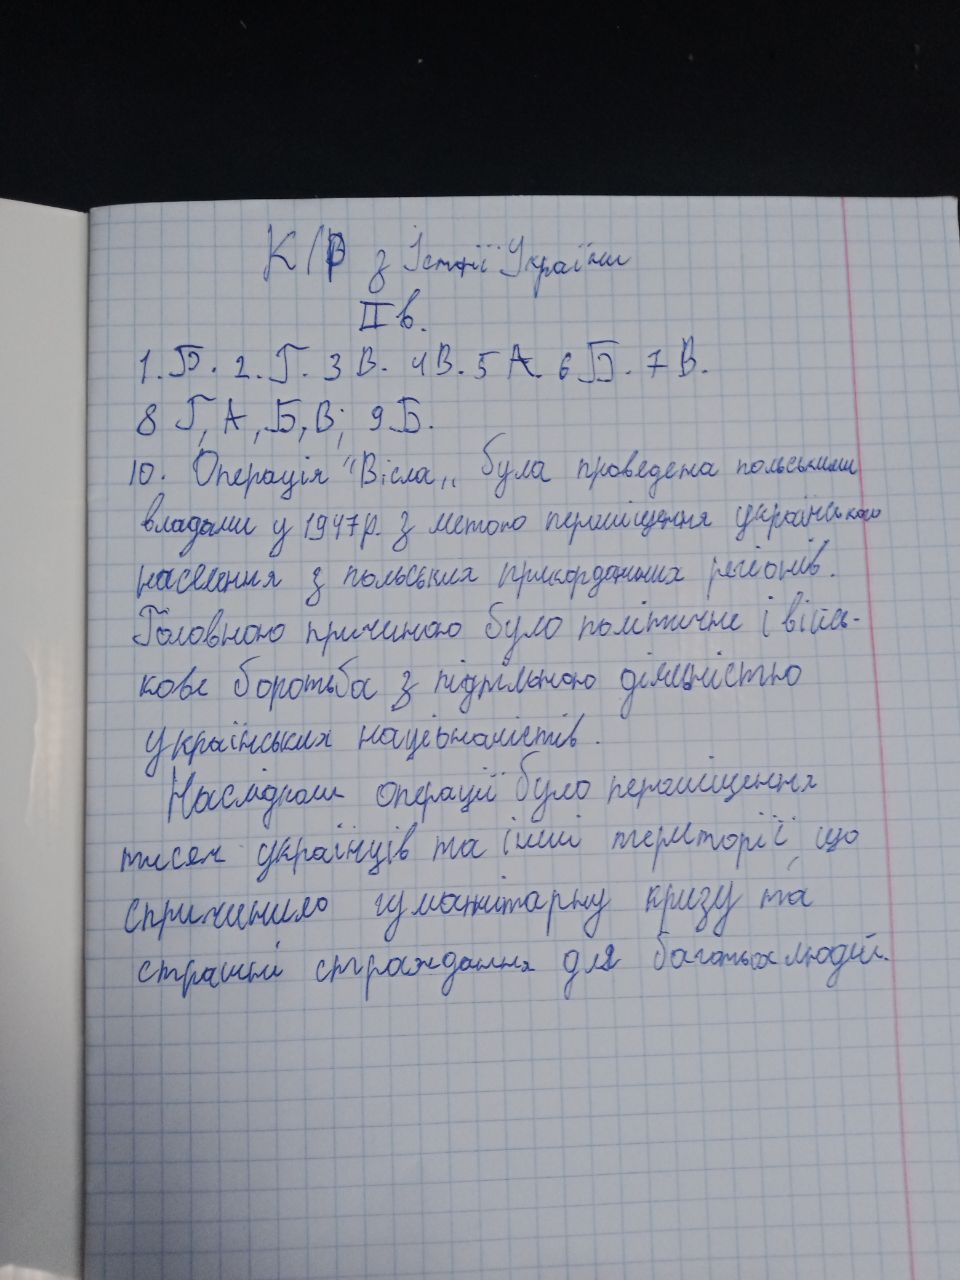 К/Р з Історії України
II в.
1. Б. 2. Г. 3 В. 4 В. 5 А. 6 Б. 7 В.
8 Г, А, Б, В; 9 Б.
10. Операція "Вісла,, була проведена польськими
владами у 1947р. з метою переміщення українського
населення з польських прикордонних регіонів.
Головною причиною було політичне і війсь-
кове боротьба з підпільною діяльністю
українських націоналістів.
Наслідком операції було переміщення
тисяч українців та інші території, що
спричинило гуманітарну кризу та
страшні страждання для багатьох людей.